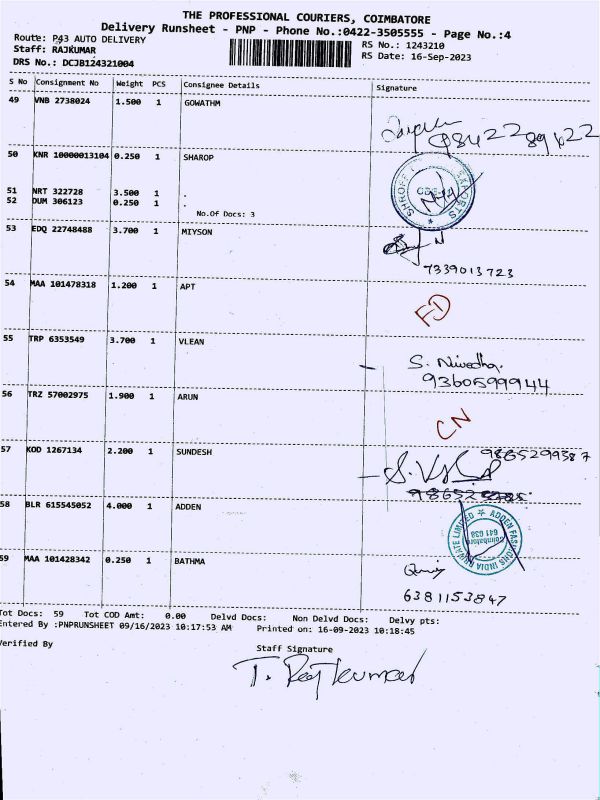 THE PROFESSIONAL COURIERS, COIMBATORE
Delivery Runsheet - PNP - Phone No.:0422-3505555 - Page No.:4
Route: P43 AUTO DELIVERY RS No.: 1243210
Staff: RAJKUMAR RS Date: 16-Sep-2023
DRS No.: DCJB124321004
S No Consignment No Weight PCS Consignee Details Signature
49 VNB 2738024 1.500 1 GOWATHM
50 KNR 10000013104 0.250 1 SHAROP
SHROFF EXPORTS
51 NRT 322728 3.500 1 .
52 DUM 306123 0.250 1 .
No.Of Docs: 3
53 EDQ 22748488 3.700 1 MIYSON
7339013723
54 MAA 101478318 1.200 1 APT
FD
55 TRP 6353549 3.700 1 VLEAN
S. Nivedha.
9360599944
56 TRZ 57002975 1.900 1 ARUN
CN
57 KOD 1267134 2.200 1 SUNDESH
9865299387
58 BLR 615545052 4.000 1 ADDEN
ADDEN FASHIONS INDIA PRIVATE LIMITED
Coimbatore
641 038
59 MAA 101428342 0.250 1 BATHMA
6381153847
Tot Docs: 59 Tot COD Amt: 0.00 Delvd Docs: Non Delvd Docs: Delvy pts:
Entered By :PNPRUNSHEET 09/16/2023 10:17:53 AM Printed on: 16-09-2023 10:18:45
Verified By Staff Signature
T. Rajkumar